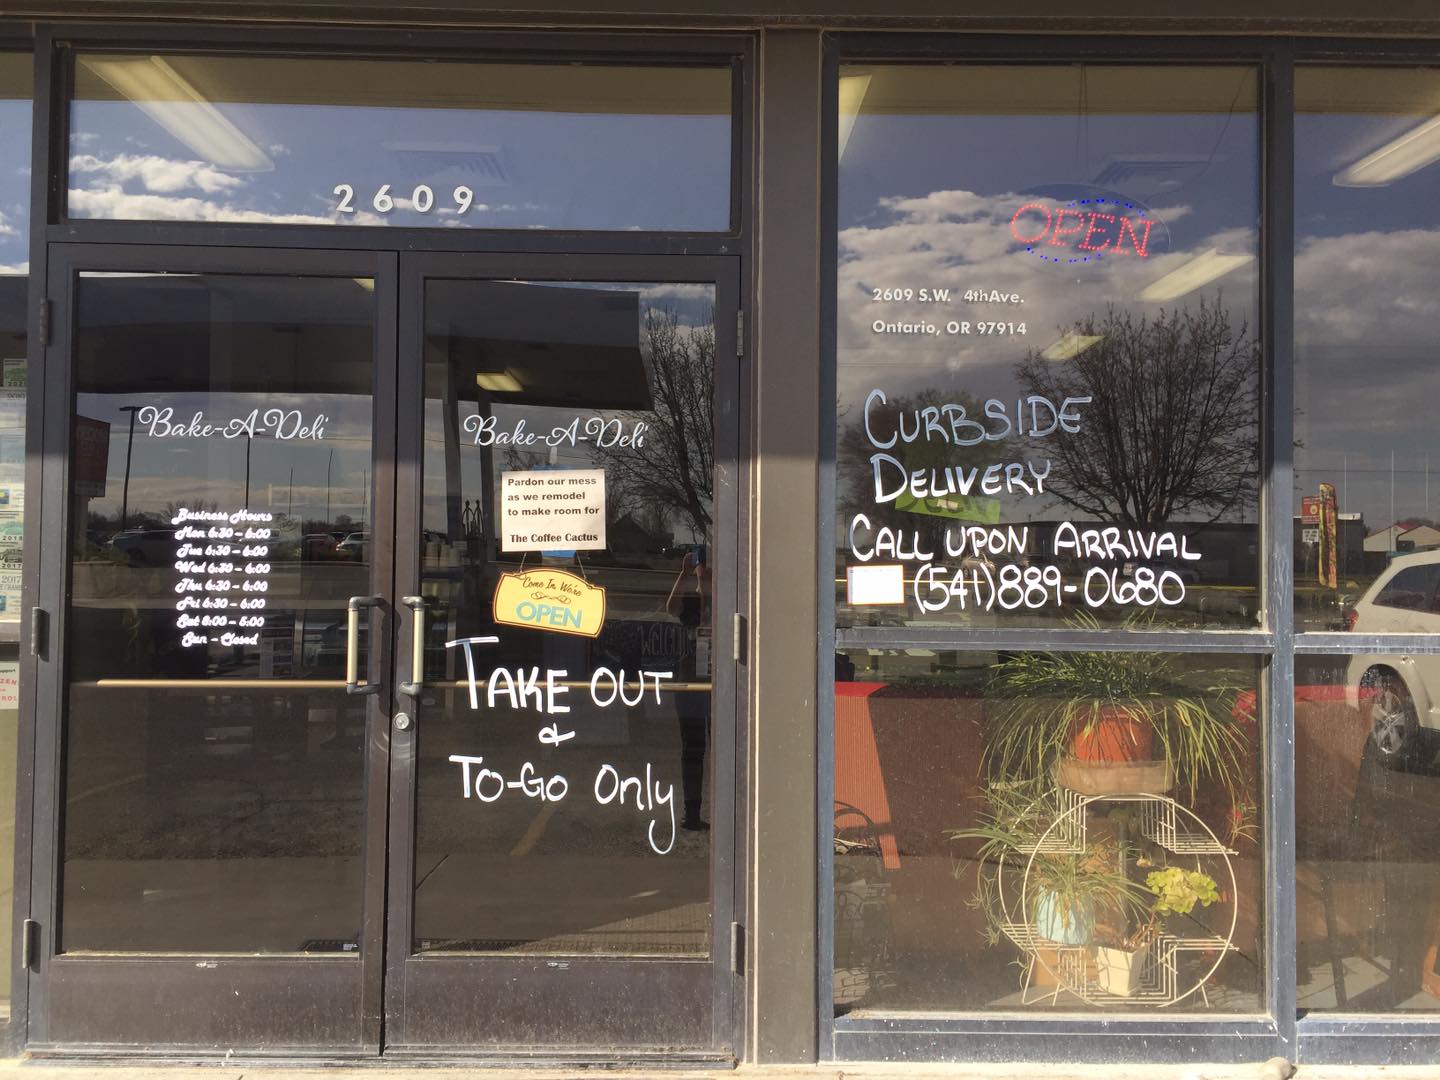 2609
Bake-A-Deli
Business Hours
Mon 6:30 - 6:00
Tue 6:30 - 6:00
Wed 6:30 - 6:00
Thu 6:30 - 6:00
Fri 6:30 - 6:00
Sat 8:00 - 5:00
Sun - Closed
Bake-A-Deli
Pardon our mess
as we remodel
to make room for
The Coffee Cactus
Come In We're
OPEN
TAKE OUT
&
TO-GO Only
OPEN
2609 S.W. 4thAve.
Ontario, OR 97914
CURBSIDE
DELIVERY
CALL UPON ARRIVAL
(541)889-0680